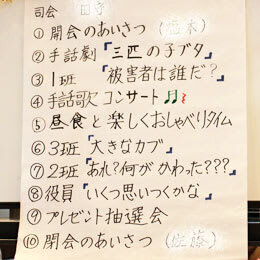 司会 田村
① 開会のあいさつ (福木)
② 手話劇『三匹の子ブタ
③ 1班 『被害者は誰だ?
④ 手話歌 コンサート🎵
⑤ 昼食と楽しくおしゃべりタイム
⑥ 3班『大きなカブ』
⑦ 2班『あれ?何がかわった???
⑧ 役員『いくつ思いつくかな
⑨ プレゼント抽選会
⑩ 閉会のあいさつ (佐藤)